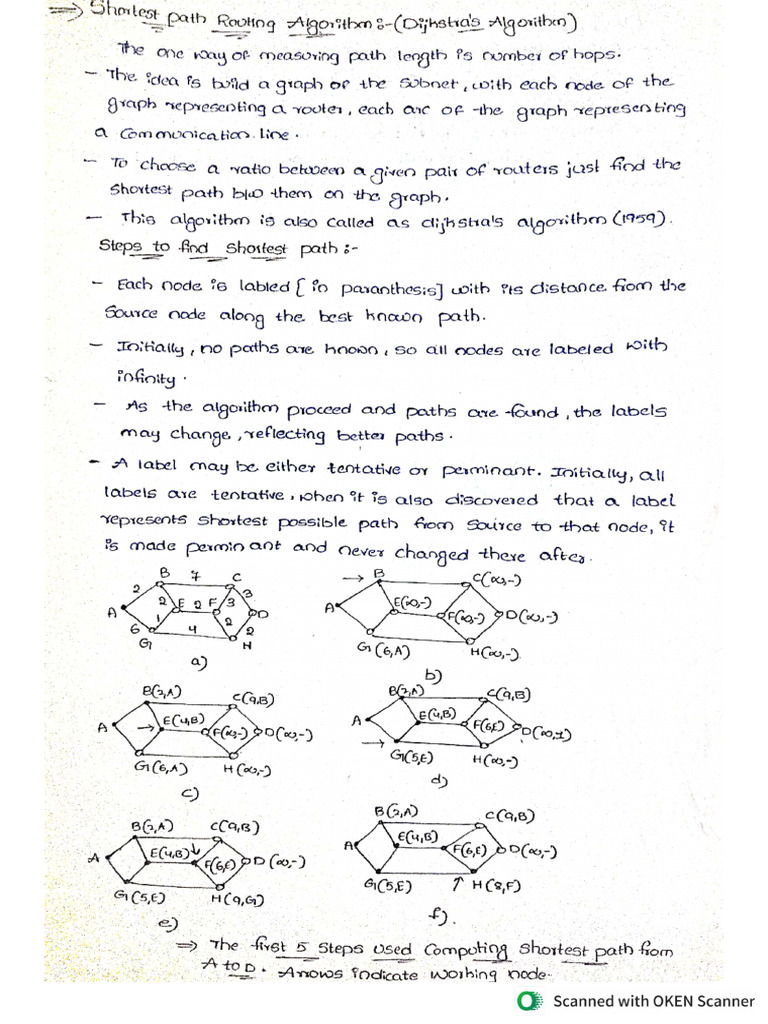 ⇒ Shortest path Routing Algorithm:-(Dijhstra's Algorithm)
The one way of measuring path length is number of hops.
- The idea is build a graph of the subnet, with each node of the
graph representing a router, each arc of the graph representing
a communication line.
- To choose a ratio between a given pair of routers just find the
shortest path b/w them on the graph.
- This algorithm is also called as dijhstra's algorithm (1959).
Steps to find shortest path:-
- Each node is labled [in paranthesis] with its distance from the
source node along the best known path.
- Initially, no paths are known, so all nodes are labeled with
infinity.
- As the algorithm proceed and paths are found, the labels
may change, reflecting better paths.
- A label may be either tentative or perminant. Initially, all
labels are tentative, when it is also discovered that a label
represents shortest possible path from source to that node, it
is made perminant and never changed there after.
B 7 C
2 2 E 2 F 3 3
A D
6 1 4 2 2
G H
a)
→ B C(∞,-)
A E(∞,-) F(∞,-) D(∞,-)
G(6,A) H(∞,-)
b)
B(2,A) C(9,B)
A → E(4,B) F(∞,-) D(∞,-)
G(6,A) H(∞,-)
c)
B(2,A) C(9,B)
A E(4,B) F(6,E) D(∞,1)
→ G(5,E) H(∞,-)
d)
B(2,A) C(9,B)
A E(4,B) ↓ F(6,E) D(∞,-)
G(5,E) H(9,G)
e)
B(2,A) C(9,B)
A E(4,B) F(6,E) D(∞,-)
G(5,E) ↑ H(8,F)
f).
⇒ The first 5 steps used computing shortest path from
A to D. Arrows indicate working node.
Scanned with OKEN Scanner